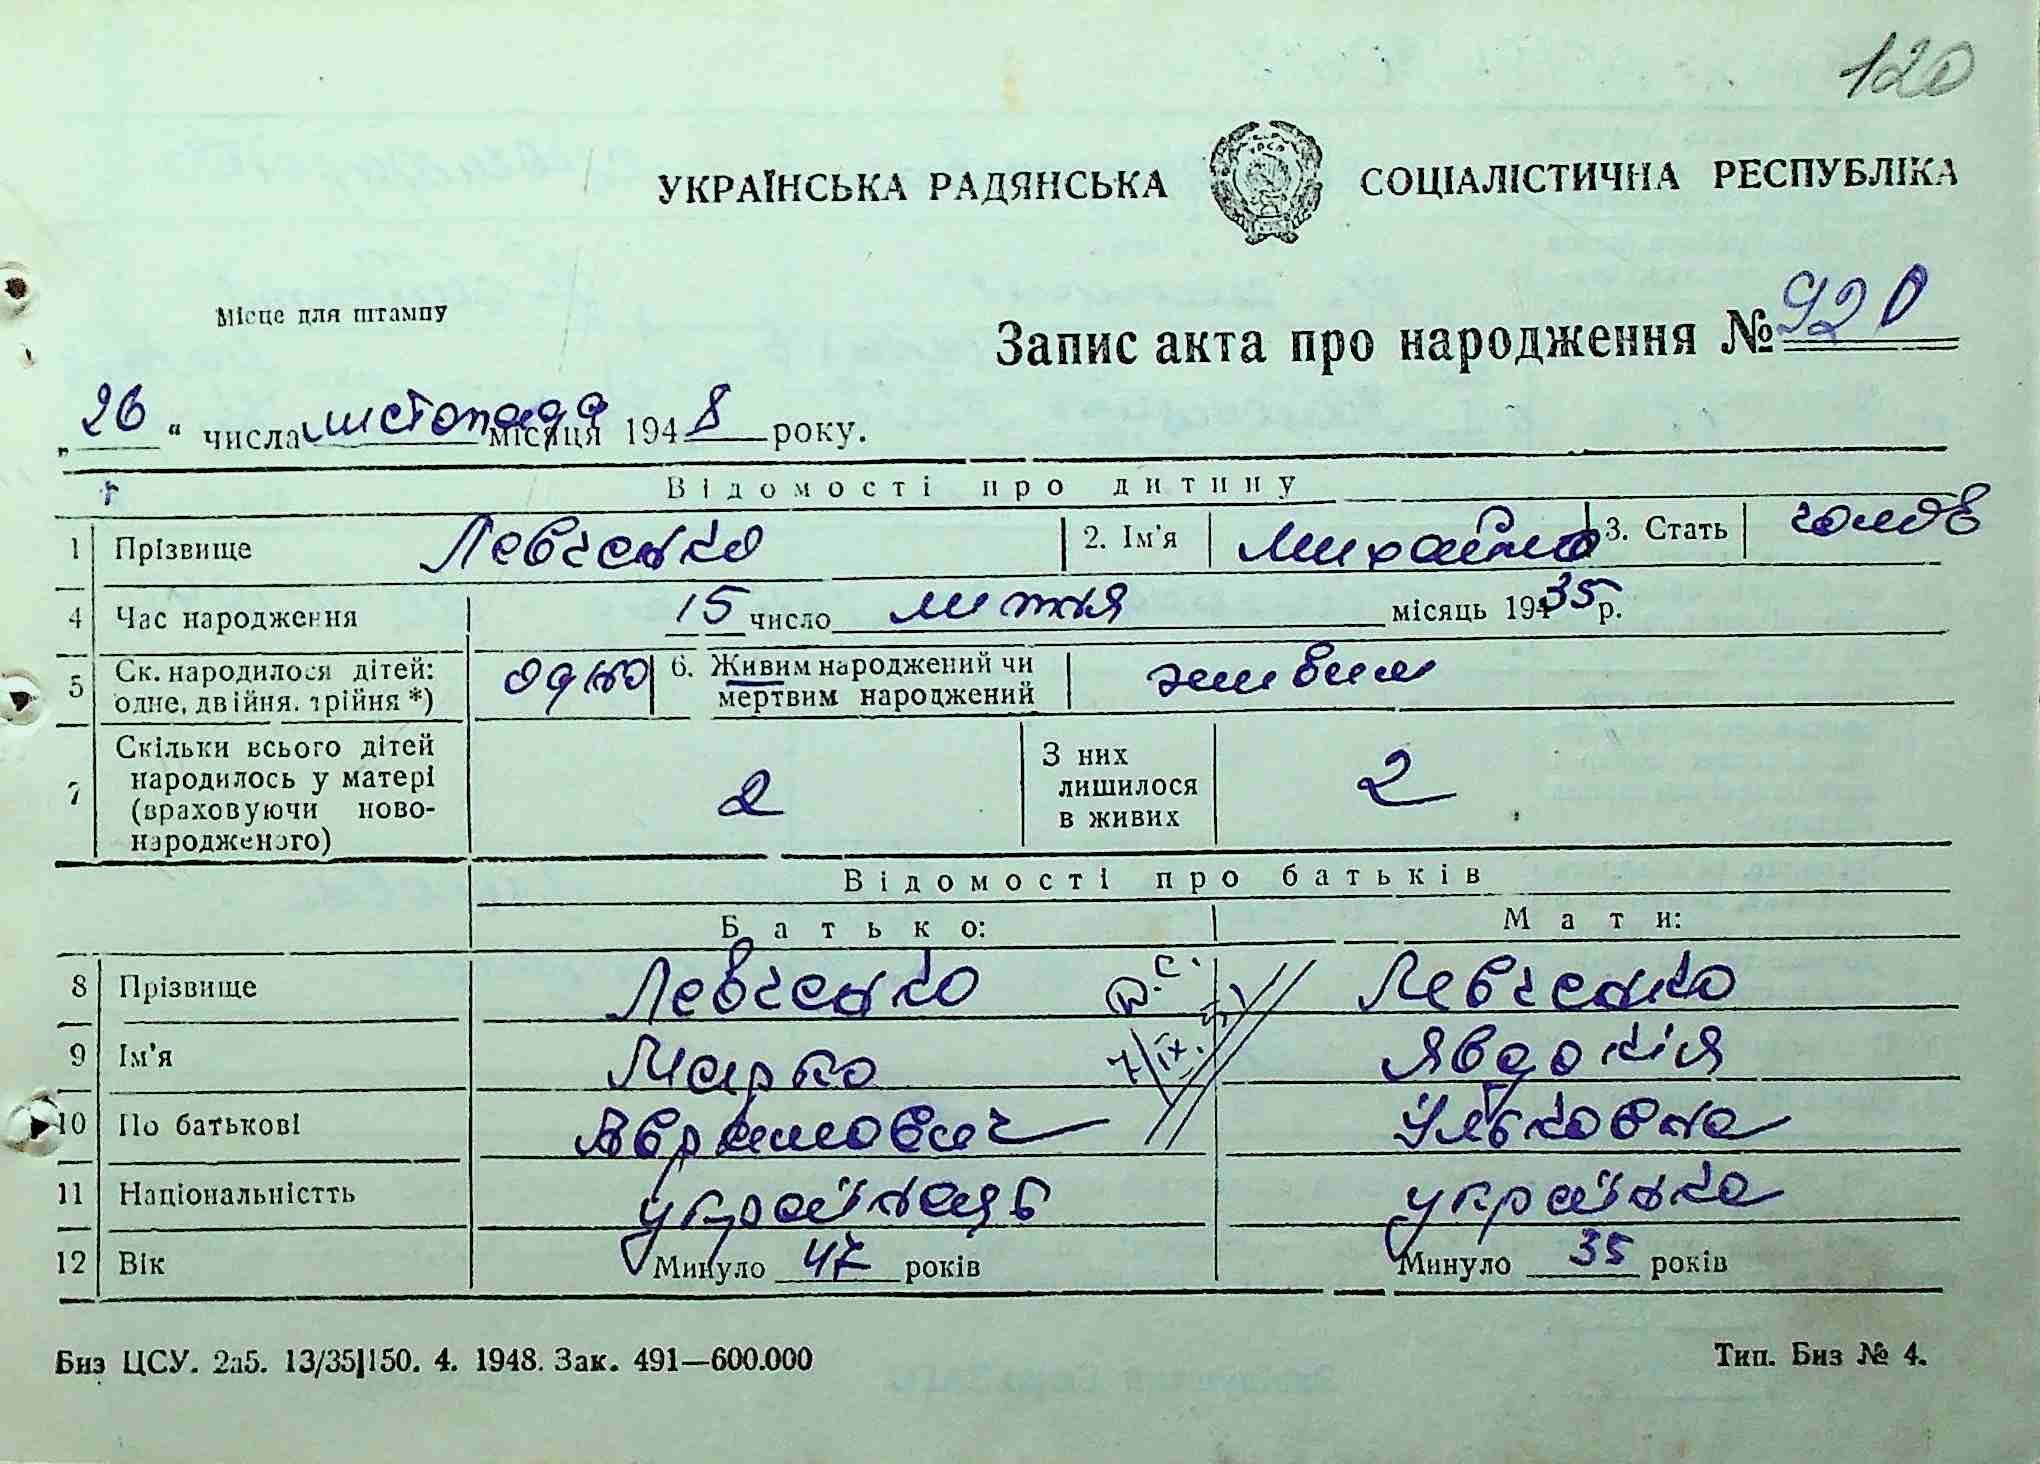 120
УКРАЇНСЬКА РАДЯНСЬКА СОЦІАЛІСТИЧНА РЕСПУБЛІКА
Місце для штампу
Запис акта про народження № 920
„26“ числа листопада місяця 1948 року.
Відомості про дитину
1 Прізвище Левченко 2. Ім'я Михайло 3. Стать чолов
4 Час народження 15 число липня місяць 19435 р.
5 Ск. народилося дітей: одно 6. Живим народжений чи живим
одне, двійня, трійня *) мертвим народжений
7 Скільки всього дітей народилось у матері (враховуючи ново-народженого) 2 З них лишилося в живих 2
Відомості про батьків
Батько: Мати:
8 Прізвище Левченко Левченко
9 Ім'я Марко Явдокія
10 По батькові Аврамович Ульковна
11 Національністть українець українка
12 Вік Минуло 47 років Минуло 35 років
Биз ЦСУ. 2а5. 13/35|150. 4. 1948. Зак. 491—600.000 Тип. Биз № 4.